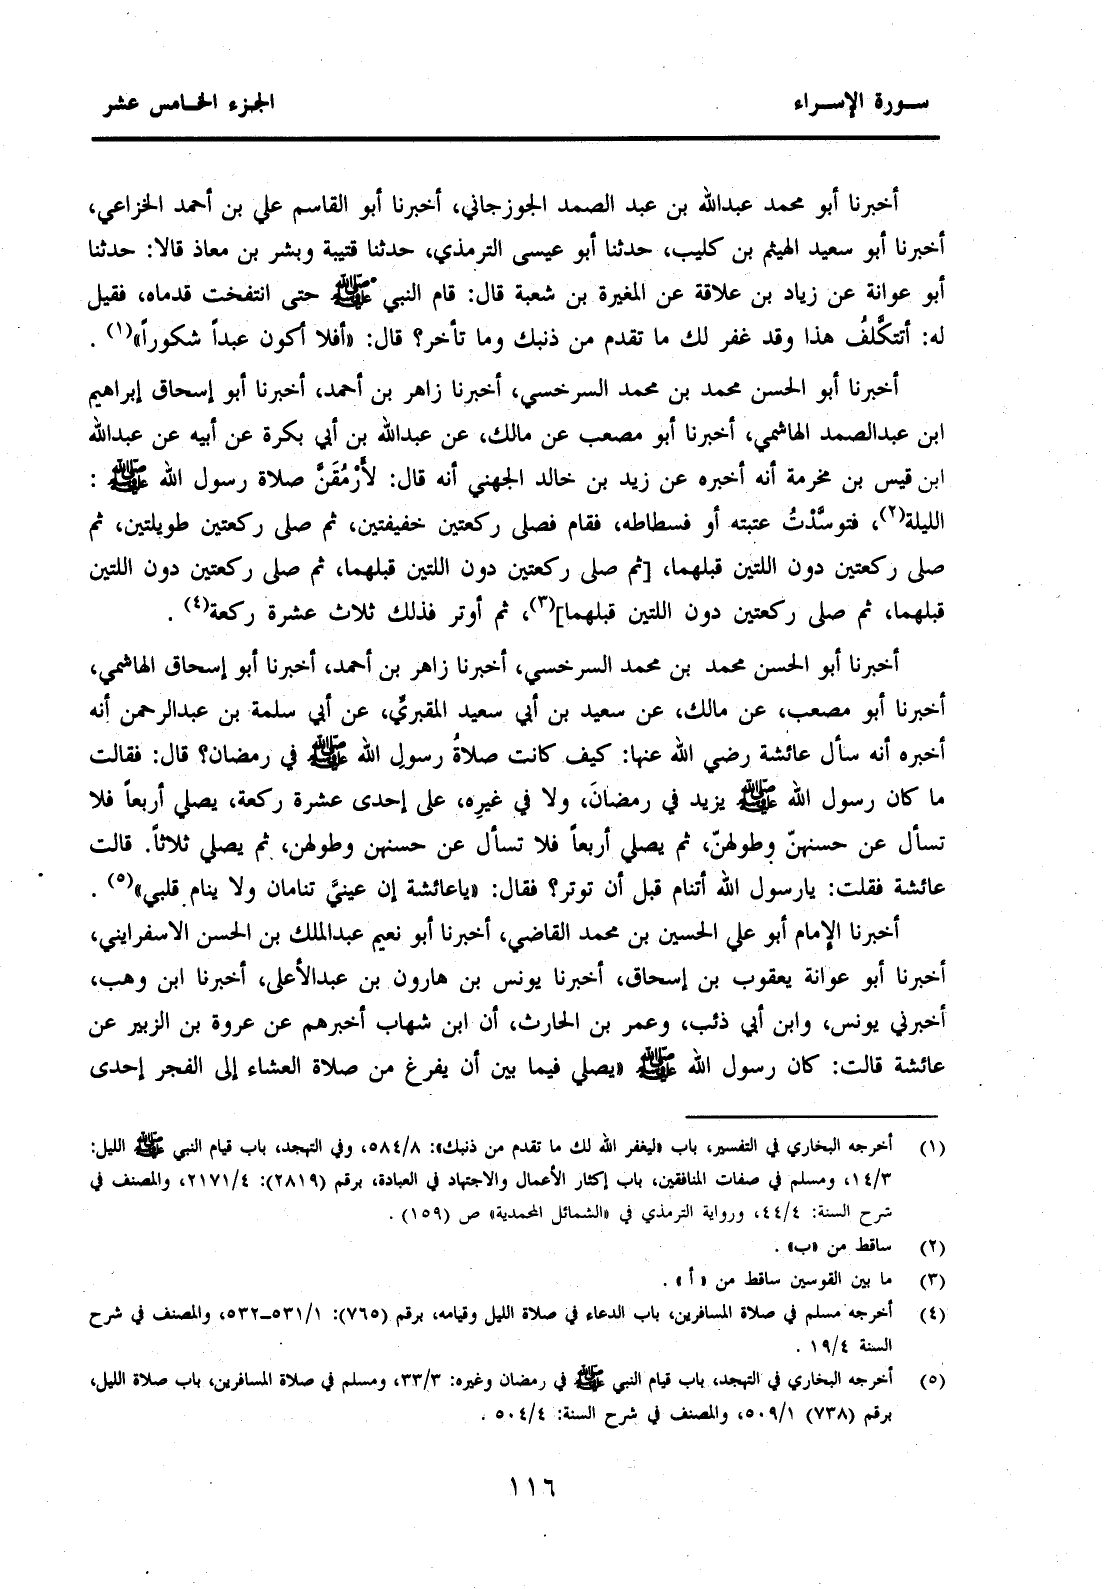 سورة الإسراء
الجزء الخامس عشر
أخبرنا أبو محمد عبدالله بن عبد الصمد الجوزجاني، أخبرنا أبو القاسم علي بن أحمد الخزاعي،
أخبرنا أبو سعيد الهيثم بن كليب، حدثنا أبو عيسى الترمذي، حدثنا قتيبة وبشر بن معاذ قالا: حدثنا
أبو عوانة عن زياد بن علاقة عن المغيرة بن شعبة قال: قام النبي ﷺ حتى انتفخت قدماه، فقيل
له: أتتكَّلفُ هذا وقد غفر لك ما تقدم من ذنبك وما تأخر؟ قال: «أفلا أكون عبداً شكوراً»(١) .
أخبرنا أبو الحسن محمد بن محمد السرخسي، أخبرنا زاهر بن أحمد، أخبرنا أبو إسحاق إبراهيم
ابن عبدالصمد الهاشمي، أخبرنا أبو مصعب عن مالك، عن عبدالله بن أبي بكرة عن أبيه عن عبدالله
ابن قيس بن مخرمة أنه أخبره عن زيد بن خالد الجهني أنه قال: لأَرْمُقَنَّ صلاة رسول الله ﷺ :
الليلة(٢)، فتوسَّدْتُ عتبته أو فسطاطه، فقام فصلى ركعتين خفيفتين، ثم صلى ركعتين طويلتين، ثم
صلى ركعتين دون اللتين قبلهما، [ثم صلى ركعتين دون اللتين قبلهما، ثم صلى ركعتين دون اللتين
قبلهما، ثم صلى ركعتين دون اللتين قبلهما](٣)، ثم أوتر فذلك ثلاث عشرة ركعة(٤) .
أخبرنا أبو الحسن محمد بن محمد السرخسي، أخبرنا زاهر بن أحمد، أخبرنا أبو إسحاق الهاشمي،
أخبرنا أبو مصعب، عن مالك، عن سعيد بن أبي سعيد المقبريِّ، عن أبي سلمة بن عبدالرحمن أنه
أخبره أنه سأل عائشة رضي الله عنها: كيف كانت صلاةُ رسولِ الله ﷺ في رمضان؟ قال: فقالت
ما كان رسول الله ﷺ يزيد في رمضانَ، ولا في غيرِه، على إحدى عشرة ركعة، يصلي أربعاً فلا
تسأل عن حسنهنّ وطولهنّ، ثم يصلي أربعاً فلا تسأل عن حسنهن وطولهن، ثم يصلي ثلاثاً. قالت
عائشة فقلت: يارسول الله أتنام قبل أن توتر؟ فقال: «ياعائشة إن عينيَّ تنامان ولا ينام قلبي»(٥) .
أخبرنا الإمام أبو علي الحسين بن محمد القاضي، أخبرنا أبو نعيم عبدالملك بن الحسن الاسفرايني،
أخبرنا أبو عوانة يعقوب بن إسحاق، أخبرنا يونس بن هارون بن عبدالأعلى، أخبرنا ابن وهب،
أخبرني يونس، وابن أبي ذئب، وعمر بن الحارث، أن ابن شهاب أخبرهم عن عروة بن الزبير عن
عائشة قالت: كان رسول الله ﷺ «يصلي فيما بين أن يفرغ من صلاة العشاء إلى الفجر إحدى
(١) أخرجه البخاري في التفسير، باب «ليغفر الله لك ما تقدم من ذنبك»: ٥٨٤/٨، وفي التهجد، باب قيام النبي ﷺ الليل:
١٤/٣، ومسلم في صفات المنافقين، باب إكثار الأعمال والاجتهاد في العبادة، برقم (٢٨١٩): ٢١٧١/٤، والمصنف في
شرح السنة: ٤٤/٤، ورواية الترمذي في «الشمائل المحمدية» ص (١٥٩) .
(٢) ساقط من «ب» .
(٣) ما بين القوسين ساقط من «أ» .
(٤) أخرجه مسلم في صلاة المسافرين، باب الدعاء في صلاة الليل وقيامه، برقم (٧٦٥): ٥٣١/١ــ٥٣٢، والمصنف في شرح
السنة ١٩/٤ .
(٥) أخرجه البخاري في التهجد، باب قيام النبي ﷺ في رمضان وغيره: ٣٣/٣، ومسلم في صلاة المسافرين، باب صلاة الليل،
برقم (٧٣٨) ٥٠٩/١، والمصنف في شرح السنة: ٥٠٤/٤ .
١١٦